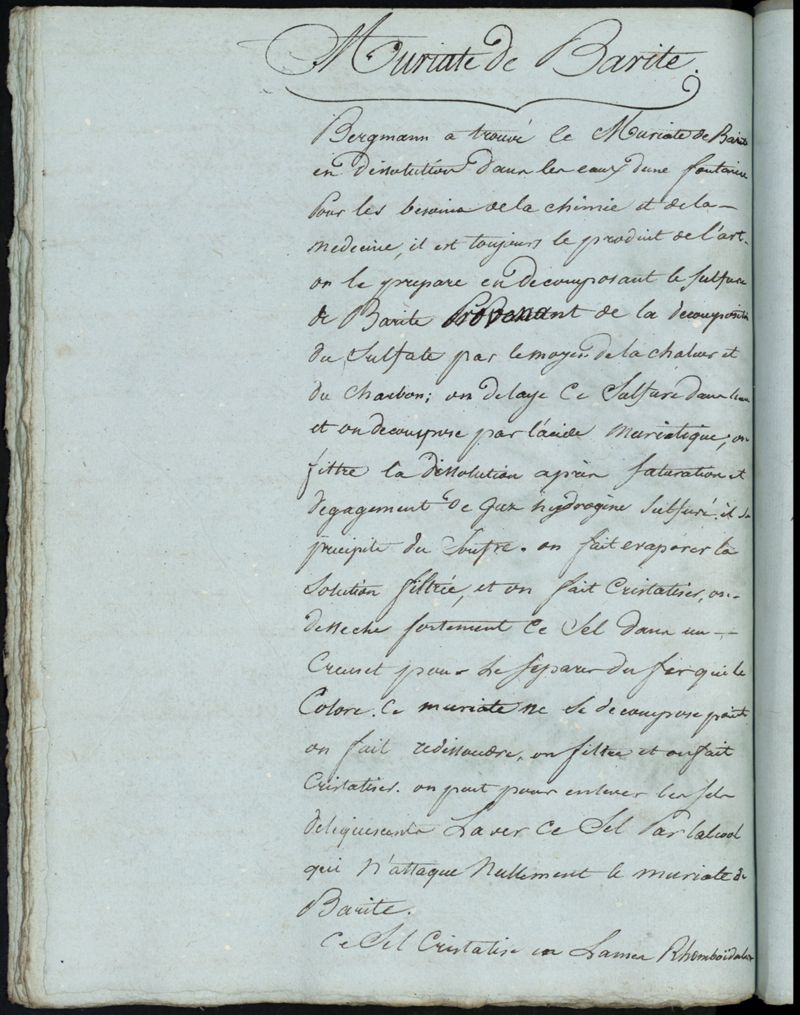 Muriate de Barite.
Bergmann a trouvé le Muriate de Barite
en dissolution dans les eaux d'une fontaine
pour les besoins de la chimie et de la
medecine, il est toujours le produit de l'art.
on le prepare en decomposant le sulfure
de Barite Provenant de la decomposition
du Sulfate par le moyen de la chaleur et
du charbon; on delaye ce Sulfure dans l'eau
et on decompose par l'acide muriatique; on
filtre la dissolution après saturation et
degagement de Gaz hydrogène sulfuré. il se
precipite du Soufre. on fait evaporer la
Solution filtrée, et on fait Cristaliser, on
desseche fortement ce Sel dans un
Creuset pour le séparer du fer qui le
Colore. Ce muriate ne se decompose point.
on fait redissoudre, on filtre et on fait
Cristaliser. on peut pour enlever les sels
deliquescents Laver ce Sel Par l'alcool
qui N'attaque Nullement le muriate de
Barite.
Ce Sel Cristalise en Lames Rhomboïdales